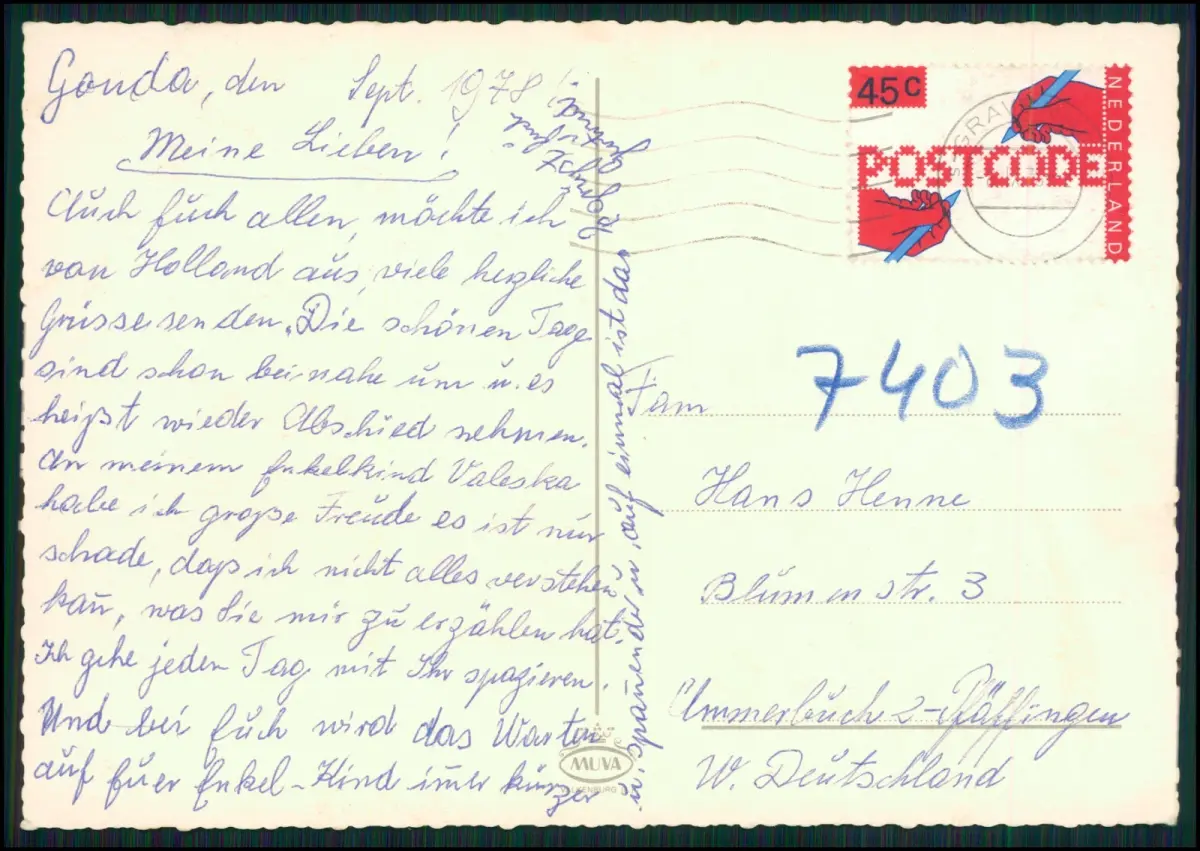 Gouda, den Sept. 1978
Meine Lieben!
Auch Euch allen, möchte ich
von Holland aus, viele herzliche
Grüsse senden. Die schönen Tage
sind schon beinahe um u. es
heißt wieder Abschied nehmen.
An meinem Enkelkind Valeska
habe ich große Freude es ist nur
schade, daß ich nicht alles verstehen
kan̄, was Sie mir zu erzählen hat.
Ich gehe jeden Tag mit Ihr spazieren.
Und bei Euch wird das Warten
auf Euer Enkel-Kind im̄er kürzer
u. span̄ender u. auf einmal ist das
45c
POSTCODE
NEDERLAND
7403
Fam
Hans Henne
Blumenstr. 3
Ammerbuch 2-Pfäffingen
W. Deutschland
MUVA
VALKENBURG